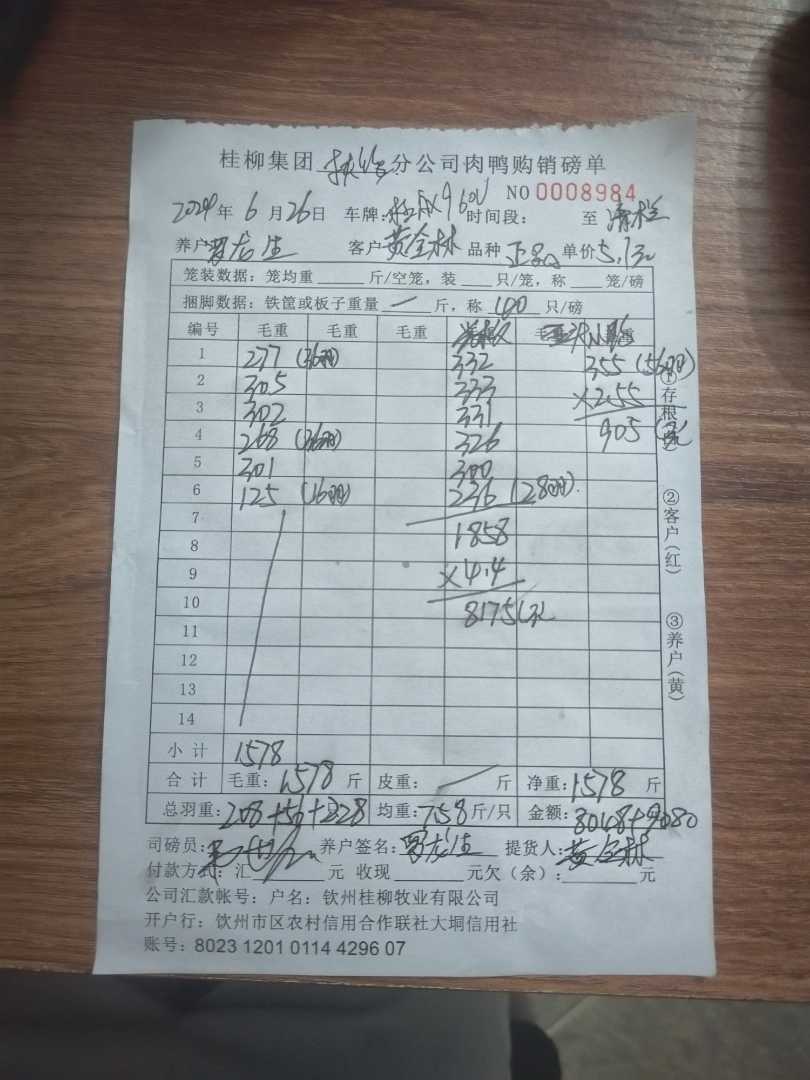 桂柳集团 分公司肉鸭购销磅单
NO 0008984
2024年 6月26日 车牌: 时间段: 至 清栏
养户 龙生 客户 黄全林 品种 正品 单价 5.1元
笼装数据: 笼均重 斤/空笼, 装 只/笼, 称 笼/磅
捆脚数据: 铁筐或板子重量 一 斤, 称 100 只/磅
编号 毛重 毛重 毛重
1 277 (36羽) 332 355 (56羽)
2 305 333 ×2.55
3 302 331 905 元
4 268 (36羽) 326
5 301 300
6 125 (16羽) 236 (28羽)
7 1858
8
9 ×4.4
10 8175元
11
12
13
14
小计 1578
合计 毛重: 1578 斤 皮重: 斤 净重: 1578 斤
总羽重: 208+56+228 均重: 7.58 斤/只 金额: 8048+9080
司磅员: 养户签名: 龙生 提货人: 黄全林
付款方式: 汇 元 收现 元欠(余): 元
公司汇款帐号: 户名: 钦州桂柳牧业有限公司
开户行: 钦州市区农村信用合作联社大垌信用社
账号: 8023 1201 0114 4296 07
①存根
②客户(红)
③养户(黄)